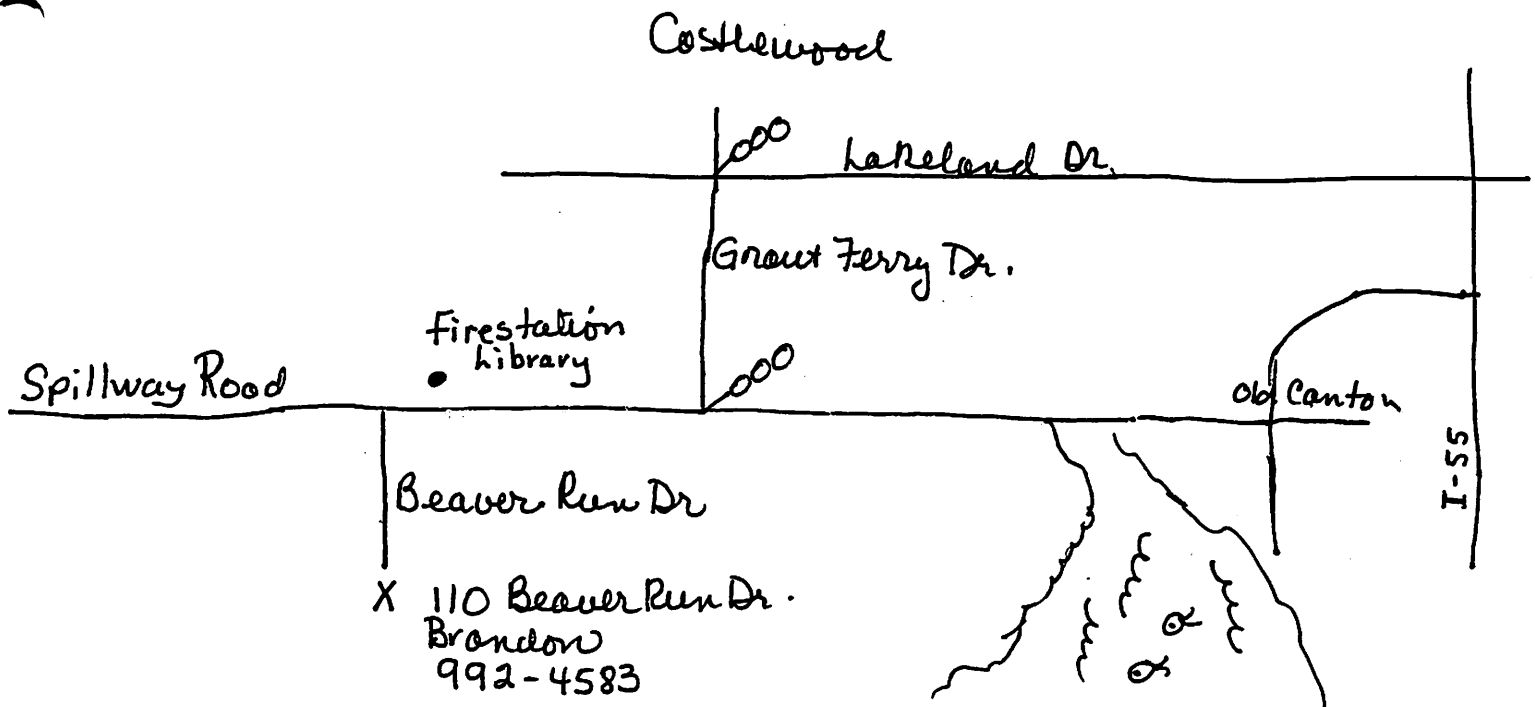 Castlewood
Lakeland Dr.
Grant Ferry Dr.
Firestation
Library
Spillway Road
Old Canton
I-55
Beaver Run Dr
X 110 Beaver Run Dr.
Brandon
992-4583